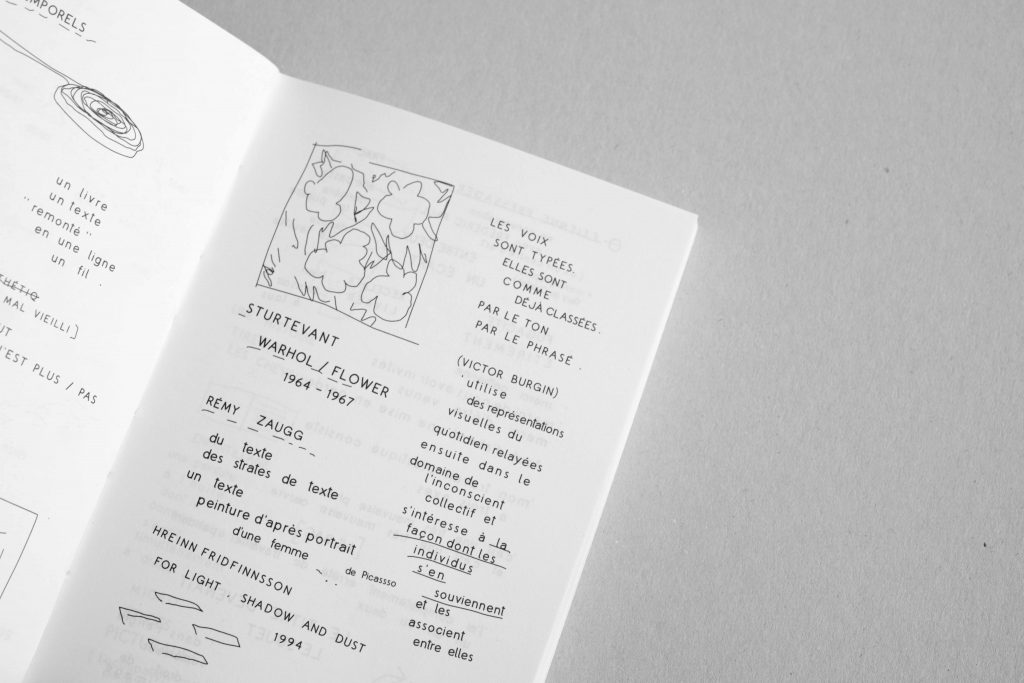 un livre
un texte
"remonté"
en une ligne
un fil .
MAL VIEILLI]
N'EST PLUS / PAS
STURTEVANT
WARHOL / FLOWER
1964 - 1967
RÉMY ZAUGG
du texte
des strates de texte
un texte
peinture d'après portrait
d'une femme
de Picassso
HREINN FRIDFINNSSON
FOR LIGHT . SHADOW AND DUST
1994
LES VOIX
SONT TYPÉES.
ELLES SONT
COMME
DÉJÀ CLASSÉES.
PAR LE TON
PAR LE PHRASÉ .
(VICTOR BURGIN)
utilise
des représentations
visuelles du
quotidien relayées
ensuite dans le
domaine de
l'inconscient
collectif et
s'intéresse à la
façon dont les
individus
s'en
souviennent
et les
associent
entre elles